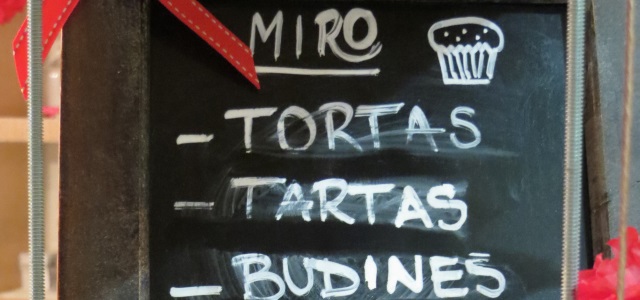 MIRO
- TORTAS
- TARTAS
- BUDINES